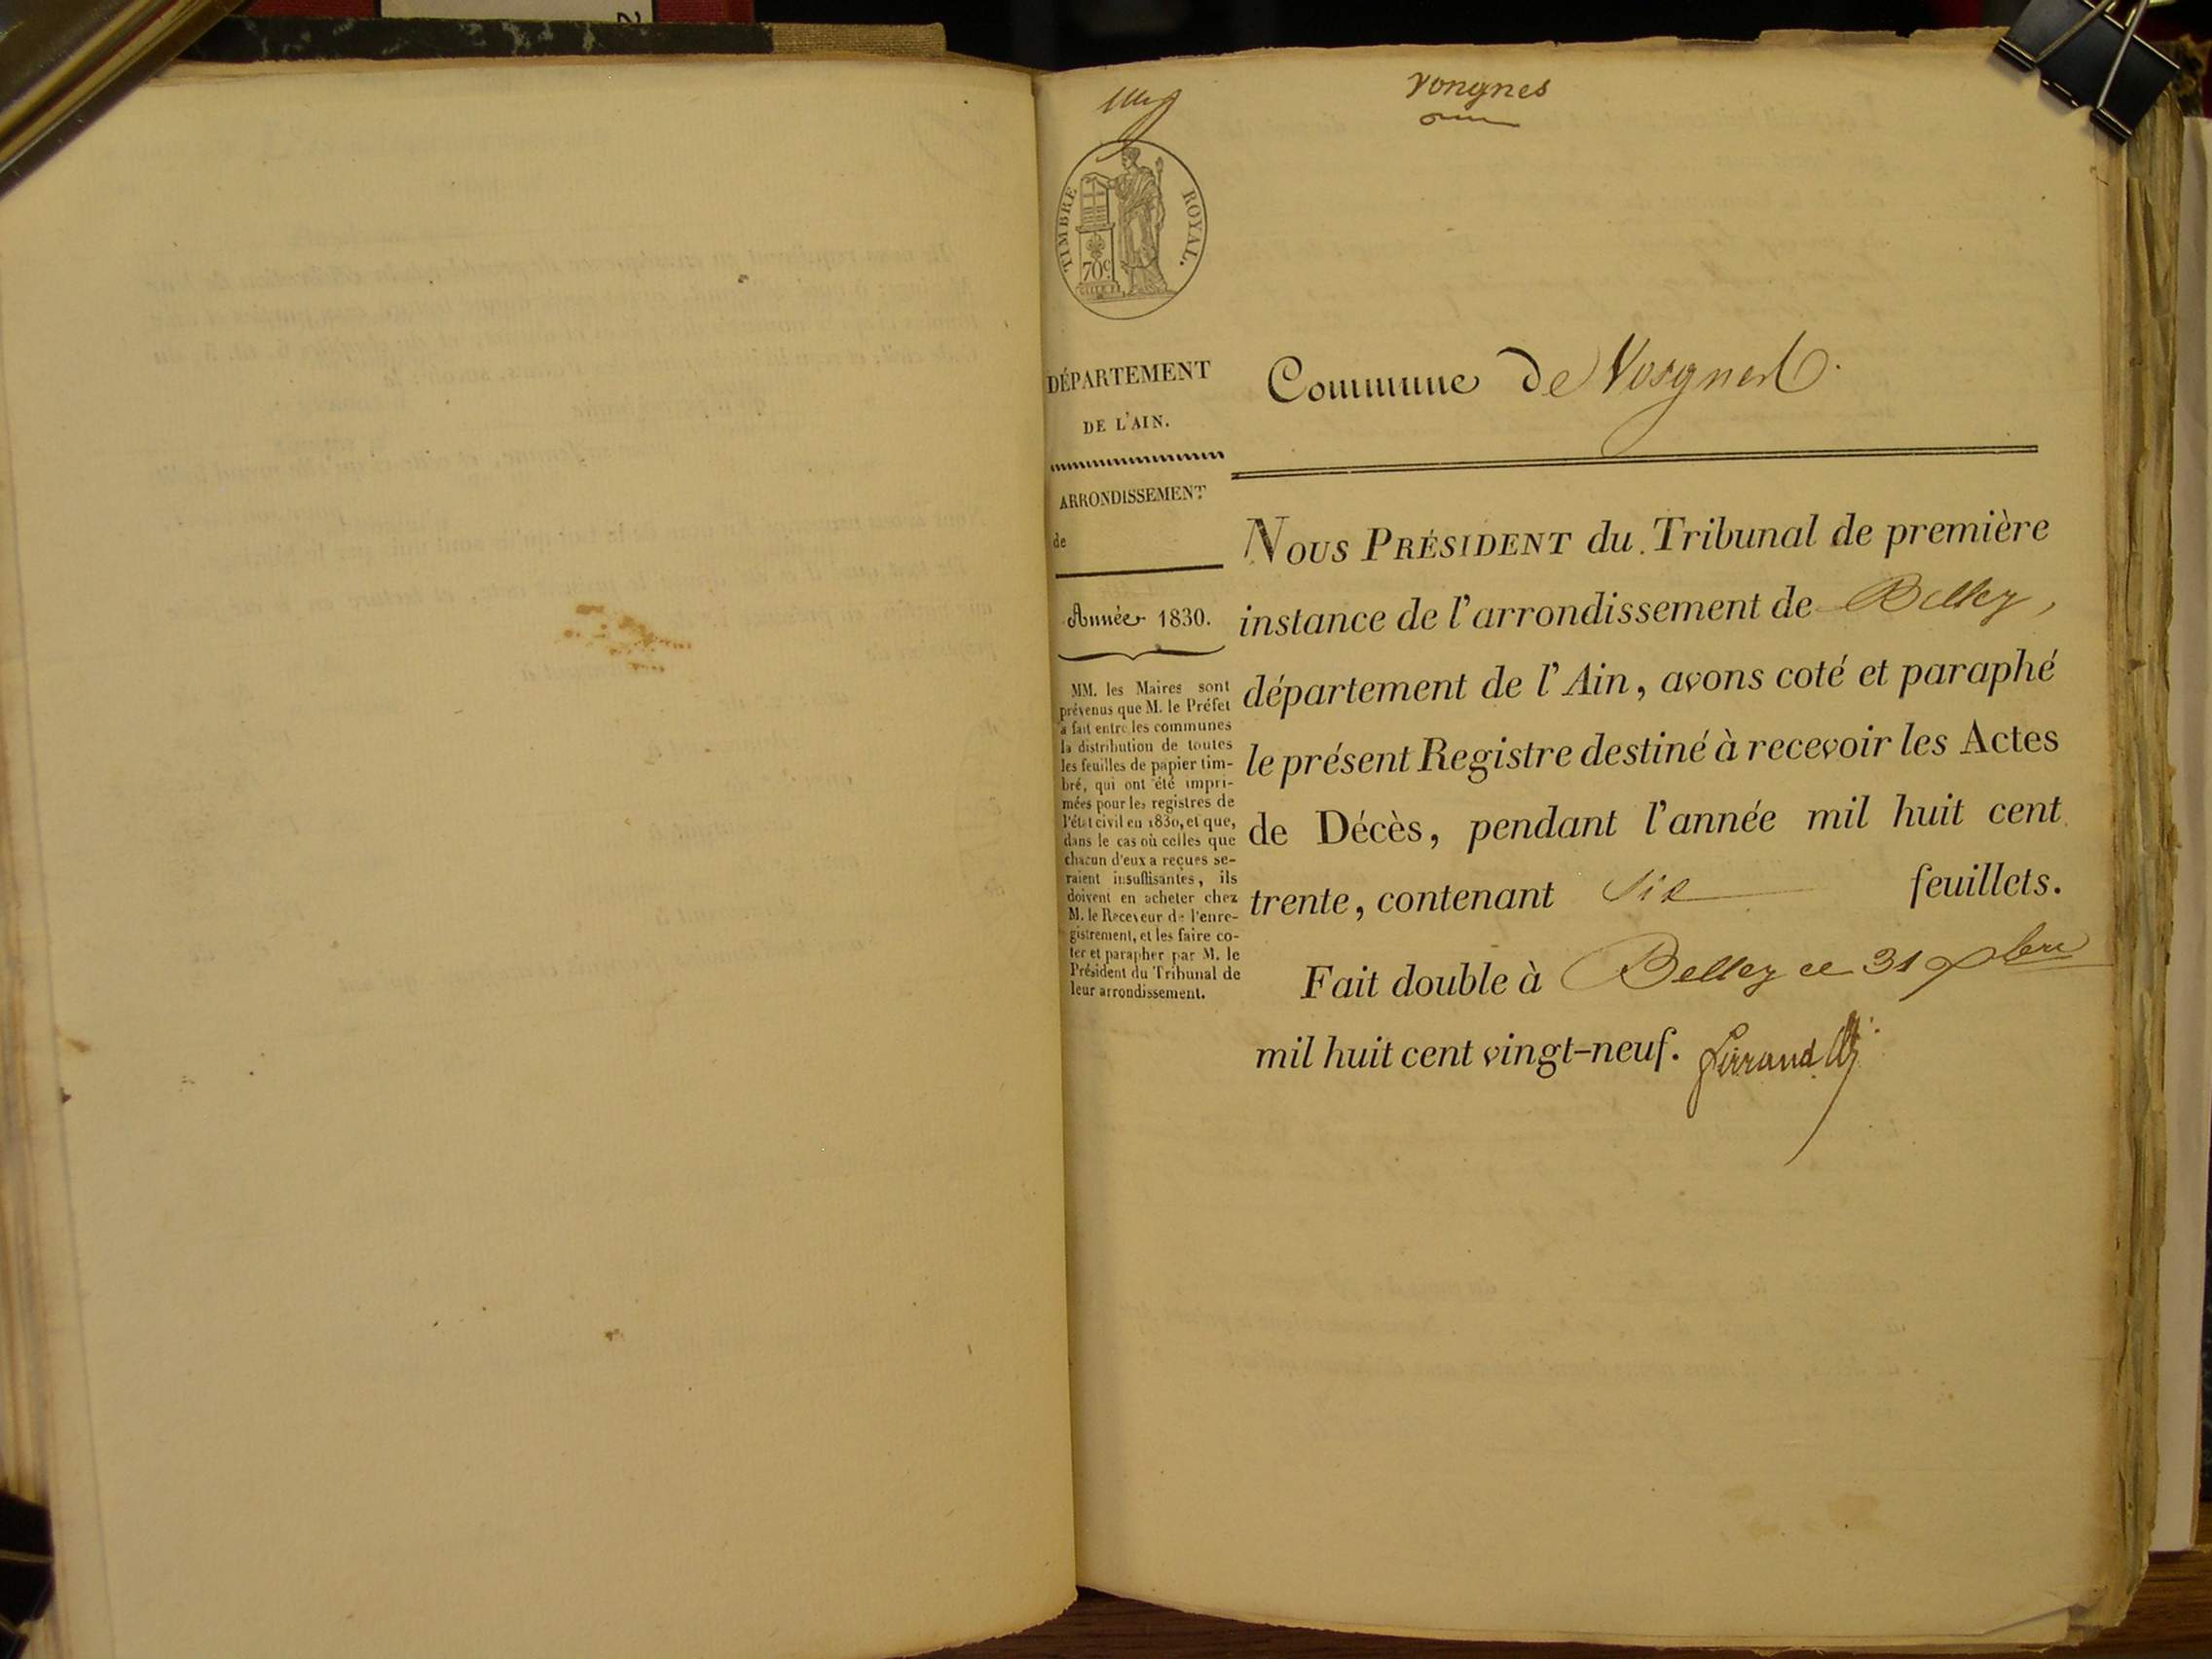 vongnes
TIMBRE ROYAL.
70c.
DÉPARTEMENT
DE L'AIN.
ARRONDISSEMENT
de
Année 1830.
MM. les Maires sont
prévenus que M. le Préfet
a fait entre les communes
la distribution de toutes
les feuilles de papier tim-
bré, qui ont été impri-
mées pour les registres de
l'état civil en 1830, et que,
dans le cas où celles que
chacun d'eux a reçues se-
raient insuffisantes, ils
doivent en acheter chez
M. le Receveur de l'enre-
gistrement, et les faire co-
ter et parapher par M. le
Président du Tribunal de
leur arrondissement.
Commune de Vosgnes
NOUS PRÉSIDENT du Tribunal de première
instance de l'arrondissement de Belley,
département de l'Ain, avons coté et paraphé
le présent Registre destiné à recevoir les Actes
de Décès, pendant l'année mil huit cent
trente, contenant Six feuillets.
Fait double à Belley ce 31 Xbre
mil huit cent vingt-neuf.